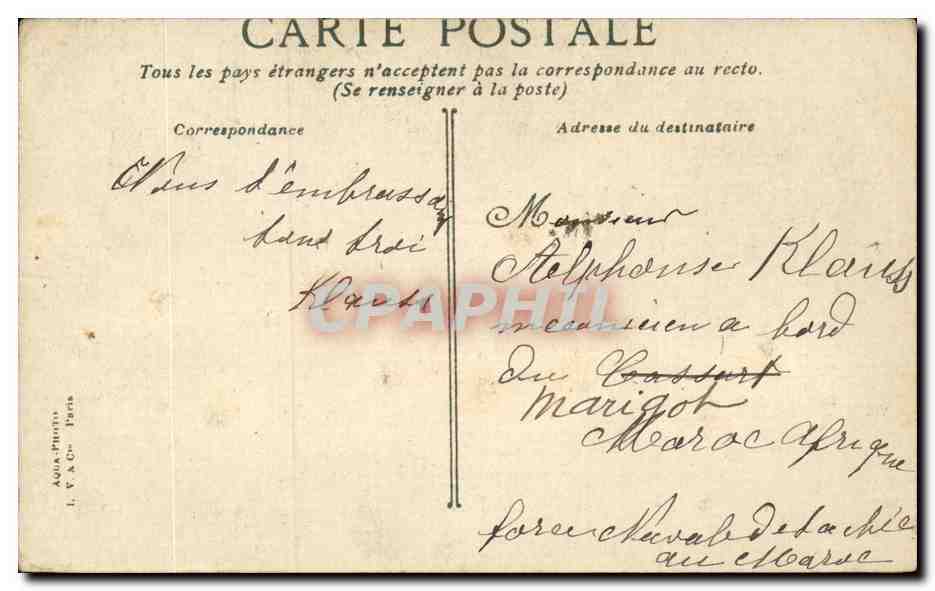 CARTE POSTALE
Tous les pays étrangers n'acceptent pas la correspondance au recto.
(Se renseigner à la poste)
Correspondance
Nous t'embrassons
tous troi
Klauss
Adresse du destinataire
Monsieur
Alphonse Klauss
mecanicien a bord
du Cassart
Marigot
Maroc Afrique
force Navale de la
au Maroc
AQUA-PHOTO
L. V. & Cie Paris
CPAPHIL